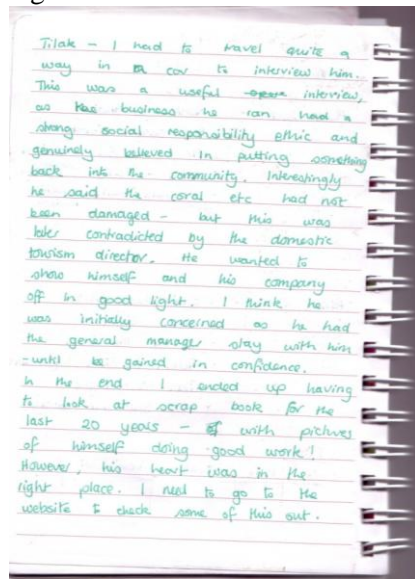 Tilak - I had to travel quite a
way in a car to interview him.
This was a useful interview,
as the business he ran had a
strong social responsibility ethic and
genuinely believed in putting something
back into the community. Interestingly
he said the coral etc had not
been damaged - but this was
later contradicted by the domestic
tourism director. He wanted to
show himself and his company
off in good light. I think he
was initially concerned as he had
the general manager stay with him
- until he gained in confidence.
In the end I ended up having
to look at scrap book for the
last 20 years - with pictures
of himself doing good work!
However, his heart was in the
right place. I need to go to the
website to check some of this out.